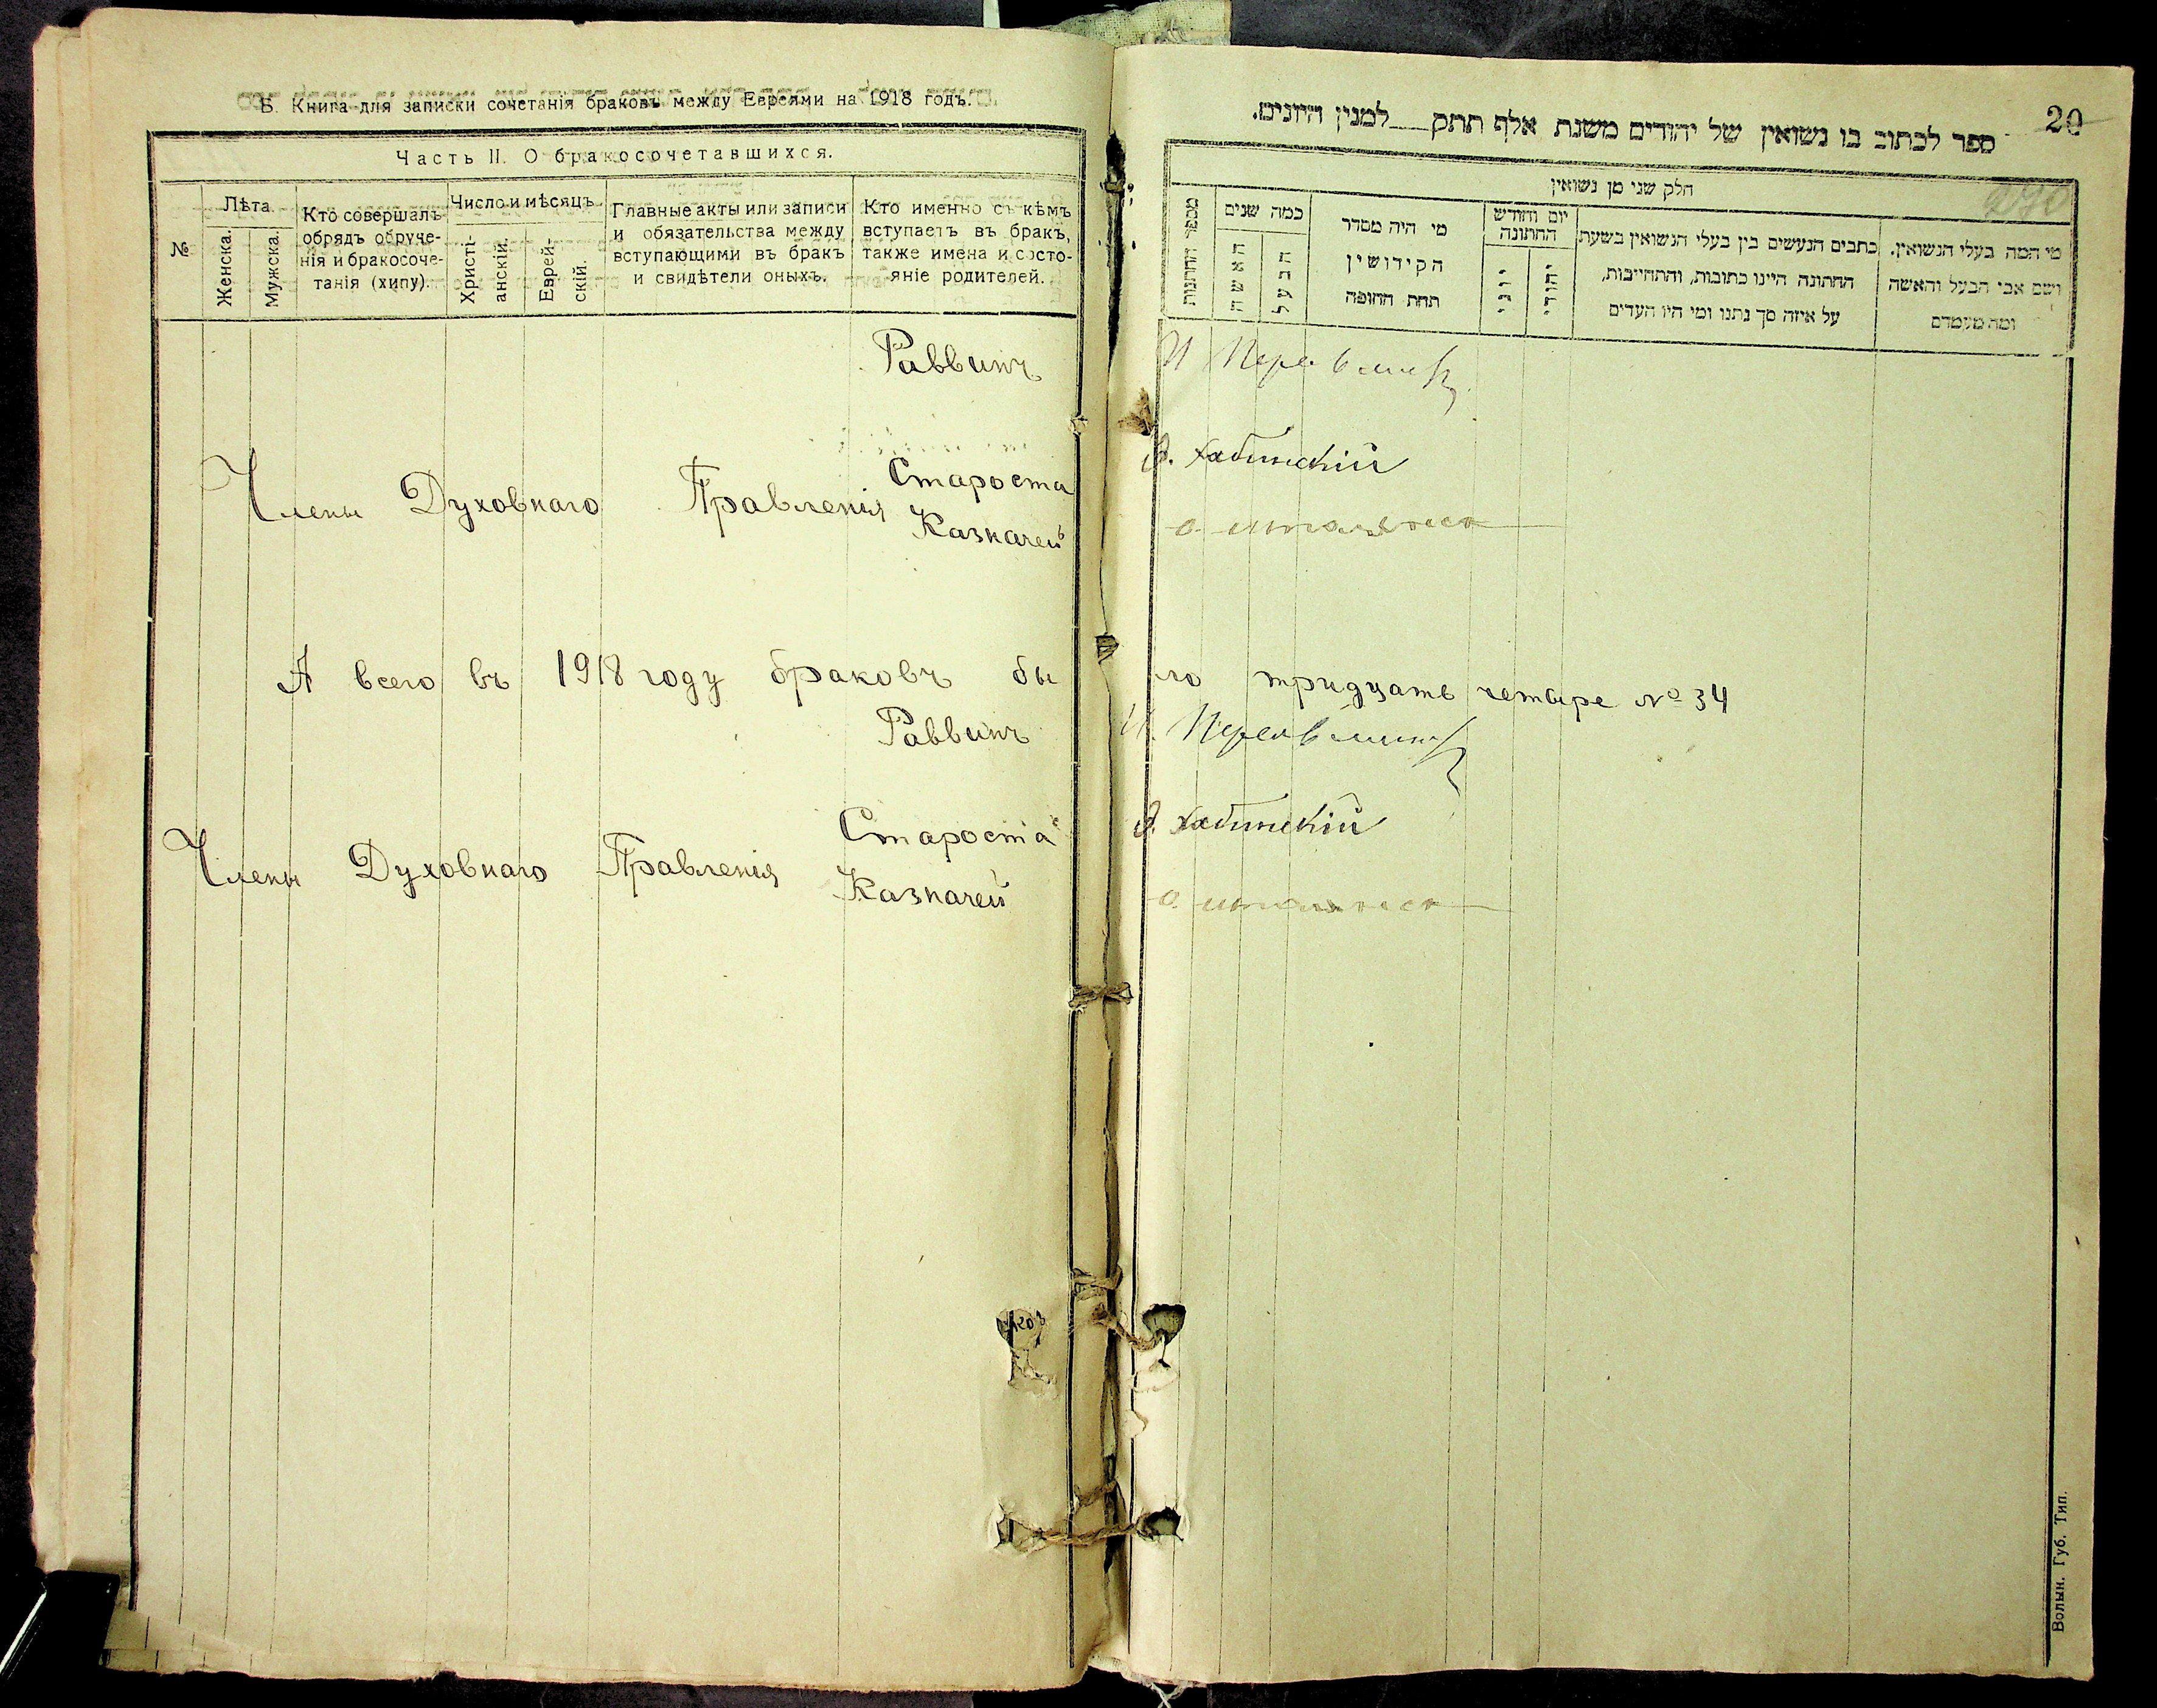 Б. Книга для записки сочетанія браковъ между Евреями на 1918 годъ.
Часть II. О бракосочетавшихся.
№
Лѣта
Женска.
Мужска.
Кто совершалъ
обрядъ обруче-
нія и бракосоче-
танія (хипу).
Число и мѣсяцъ
Христі-
анскій.
Еврей-
скій.
Главные акты или записи
и обязательства между
вступающими въ бракъ
и свидѣтели оныхъ.
Кто именно съ кѣмъ
вступаетъ въ бракъ,
также имена и состо-
яніе родителей.
Раввинъ
Члены Духовнаго Правленія
Староста
Казначей
А всего въ 1918 году браковъ бы
Раввинъ
Члены Духовнаго Правленія
Староста
Казначей
20
ספר לכתוב בו נשואין של יהודים משנת אלף תתק למנין היונים.
חלק שני מן נשואין
מספר החתונות
כמה שנים
האשה
הבעל
מי היה מסדר
הקידושין
תחת החופה
יום וחודש
החתונה
יוני
יהודי
כתבים הנעשים בין בעלי הנשואין בשעת
החתונה היינו כתובות, והתחייבות,
על איזה סך נתנו ומי היו העדים
מי המה בעלי הנשואין.
ושם אבי הבעל והאשה
ומה מעמדם
ло тридцать четыре № 34
Волын. Губ. Тип.